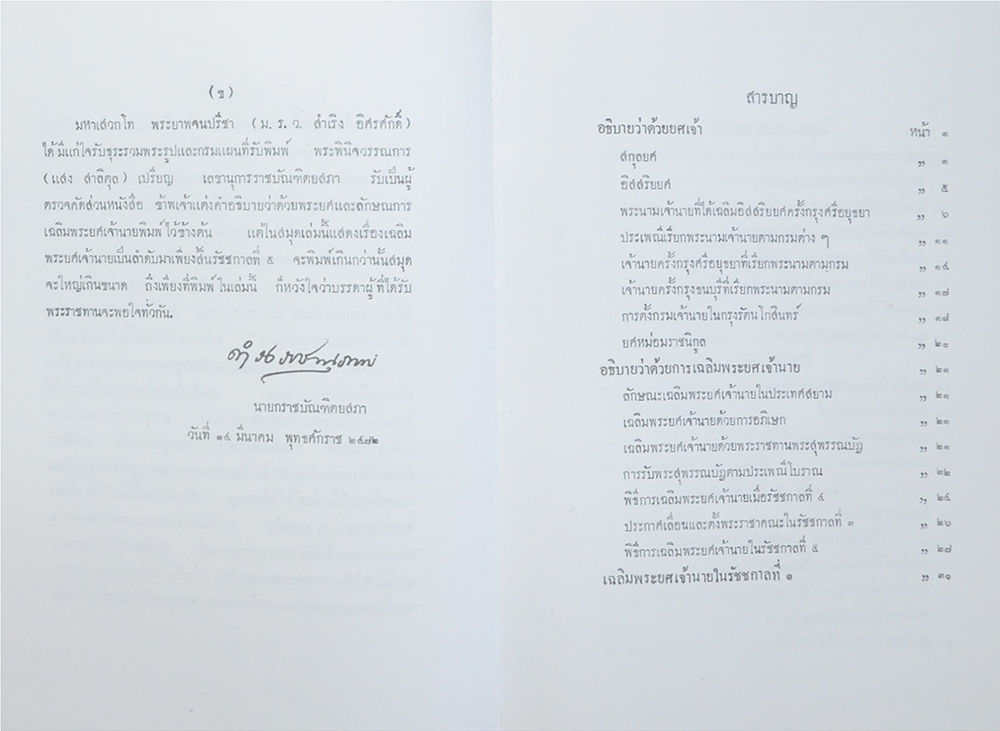 (ข)
มหาเสวกโท พระยาพจนปรีชา (ม.ร.ว. สำเริง อิศรศักดิ์)
ได้มีแก่ใจรับธุระรวมพระรูปและกรมแผนที่รับพิมพ์ พระพินิจวรรณการ
(แสง สาลิตุล) เปรียญ เลขานุการราชบัณฑิตยสภา รับเป็นผู้
ตรวจคัดส่วนหนังสือ ข้าพเจ้าแต่งคำอธิบายว่าด้วยพระยศและลักษณการ
เฉลิมพระยศเจ้านายพิมพ์ไว้ข้างต้น แต่ในสมุดเล่มนี้แสดงเรื่องเฉลิม
พระยศเจ้านายเป็นลำดับมาเพียงสิ้นรัชชกาลที่ ๕ จะพิมพ์เกินกว่านั้นสมุด
จะใหญ่เกินขนาด ถึงเพียงที่พิมพ์ในเล่มนี้ ก็หวังใจว่าบรรดาผู้ที่ได้รับ
พระราชทานจะพอใจทั่วกัน.
ดำรงราชานุภาพ
นายกราชบัณฑิตยสภา
วันที่ ๑๔ มีนาคม พุทธศักราช ๒๔๗๒
สารบาญ
อธิบายว่าด้วยยศเจ้า หน้า ๑
สกุลยศ ,, ๑
อิสสริยยศ ,, ๕
พระนามเจ้านายที่ได้เฉลิมอิสสริยยศครั้งกรุงศรีอยุธยา ,, ๖
ประเพณีเรียกพระนามเจ้านายตามกรมต่าง ๆ ,, ๑๑
เจ้านายครั้งกรุงศรีอยุธยาที่เรียกพระนามตามกรม ,, ๑๔
เจ้านายครั้งกรุงธนบุรีที่เรียกพระนามตามกรม ,, ๑๗
การตั้งกรมเจ้านายในกรุงรัตนโกสินทร์ ,, ๑๘
ยศหม่อมราชนิกูล ,, ๒๐
อธิบายว่าด้วยการเฉลิมพระยศเจ้านาย ,, ๒๑
ลักษณะเฉลิมพระยศเจ้านายในประเทศสยาม ,, ๒๑
เฉลิมพระยศเจ้านายด้วยการอภิเษก ,, ๒๑
เฉลิมพระยศเจ้านายด้วยพระราชทานพระสุพรรณบัฏ ,, ๒๑
การรับพระสุพรรณบัฏตามประเพณีโบราณ ,, ๒๒
พิธีการเฉลิมพระยศเจ้านายเมื่อรัชชกาลที่ ๔ ,, ๒๔
ประกาศเลื่อนและตั้งพระราชาคณะในรัชชกาลที่ ๓ ,, ๒๖
พิธีการเฉลิมพระยศเจ้านายในรัชชกาลที่ ๕ ,, ๒๘
เฉลิมพระยศเจ้านายในรัชชกาลที่ ๑ ,, ๓๑